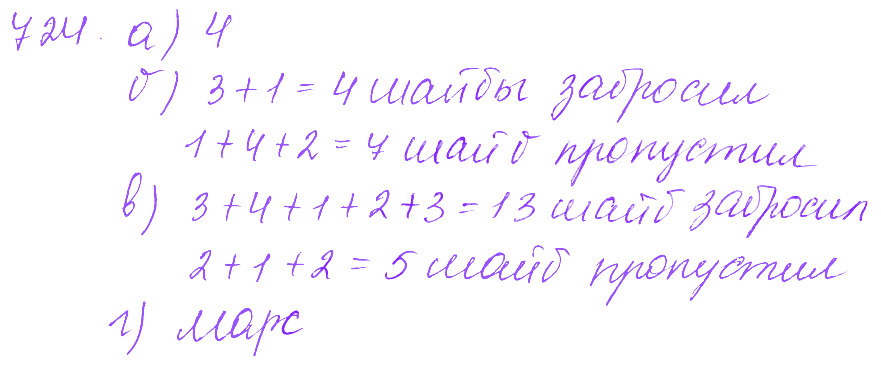 724. а) 4
б) 3+1=4 шайбы забросил
1+4+2=7 шайб пропустил
в) 3+4+1+2+3=13 шайб забросил
2+1+2=5 шайб пропустил
г) Марс